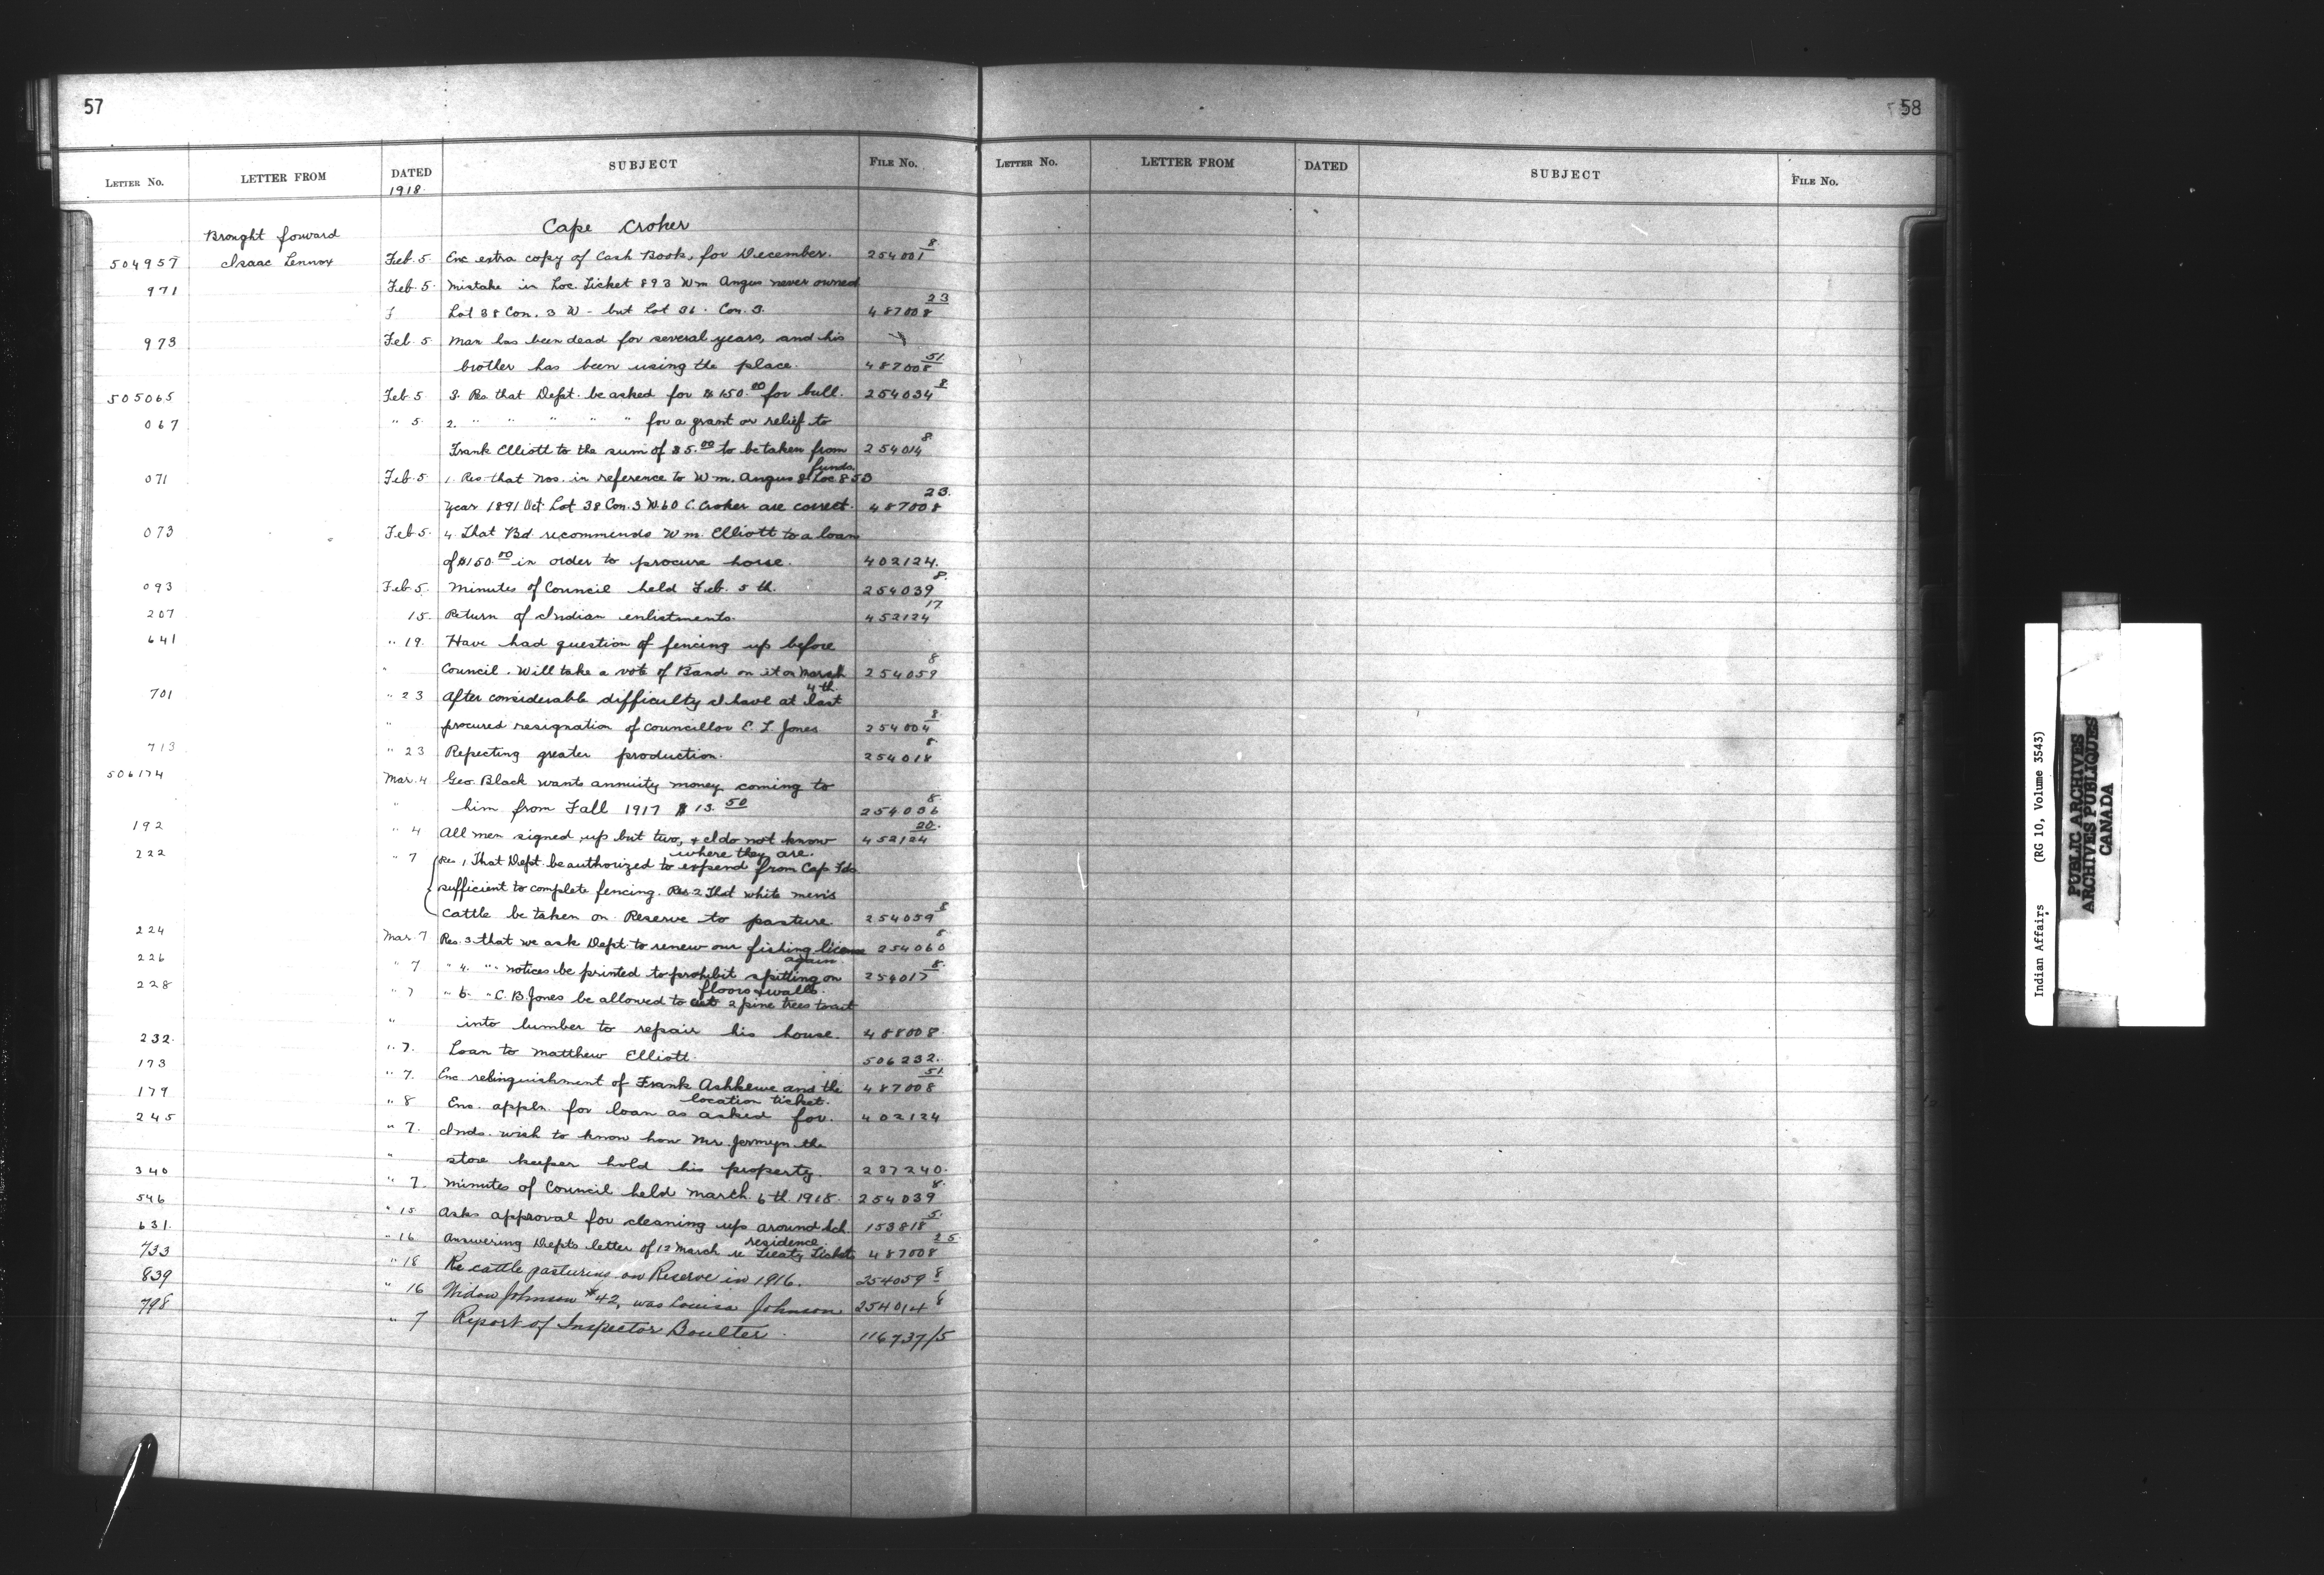 57
LETTER NO. LETTER FROM DATED SUBJECT FILE NO.
1918.
Cape Croker
Brought forward
504957 Isaac Lennox Feb. 5 Enc extra copy of Cash Book, for December. 254001 8
971 Feb. 5. Mistake in Loc. Ticket 893 Wm Angus never owned
Lot 38 Con. 3 W - but Lot 36. Con. 3. 487008 23
973 Feb. 5 Man has been dead for several years, and his
brother has been using the place. 487008 51
505065 Feb. 5 3. Res that Dept. be asked for $150.00 for bull. 254034 8
067 " 5. 2. " " " " " for a grant or relief to
Frank Elliott to the sum of $5.00 to be taken from 254014 8
funds.
071 Feb. 5 1. Res that Nos. in reference to Wm. Angus Loc 853
year 1891 Oct. Lot 38 Con. 3 W. 60 C. Croker are correct. 487008 23.
073 Feb 5. 4. That Bd. recommends Wm. Elliott to a loan
of $150.00 in order to procure horse. 402124.
093 Feb. 5. Minutes of Council held Feb. 5 th. 254039 8.
207 15. Return of Indian enlistments. 452124 17
641 " 19. Have had question of fencing up before
" Council. Will take a vote of Band on it on March 254059 8
4 th.
701 " 23 After considerable difficulty I have at last
" procured resignation of Councillor E. L. Jones 254004 8.
713 " 23 Repecting greater production. 254018 8.
506174 Mar. 4 Geo. Black wants annuity money coming to
" him from Fall 1917 $13.50 254036 8.
192 " 4 All men signed up but two, & I do not know 452124 20.
where they are.
222 " 7 Res. 1, That Dept. be authorized to expend from Cap Fds
sufficient to complete fencing. Res 2 That white men's
cattle be taken on Reserve to pasture 254059 8
224 Mar. 7 Res. 3 that we ask Dept. to renew our fishing license 254060 8.
again.
226 " 7 " 4. " notices be printed to prohibit spitting on 254017 8.
floors & walls.
228 " 7 " 6. " C. B. Jones be allowed to cut 2 pine trees to cut
" into lumber to repair his house. 488008.
232. " 7. Loan to Matthew Elliott. 506232.
173 " 7. Enc relinquishment of Frank Ashkewe and the 487008 51.
location ticket.
179 " 8 Enc. appln. for loan as asked for. 402124
245 " 7. Inds. wish to know how Mr. Jermyn the
" store keeper hold his property. 237240.
340 " 7. Minutes of Council held March 6 th. 1918. 254039 8.
546 " 15 Asks approval for cleaning up around Sch. 153818 5.
residence.
631. " 16 Answering Dept's letter of 12 March re Treaty Tickets 487008 25
733 " 18 Re cattle pasturing on Reserve in 1916. 254059 8
839 " 16 Widow Johnson #42, was Louisa Johnson 254014 8
798 " 7 Report of Inspector Boulter. 116737/5
58
LETTER NO. LETTER FROM DATED SUBJECT FILE NO.
Indian Affairs (RG 10, Volume 3543)
PUBLIC ARCHIVES
ARCHIVES PUBLIQUES
CANADA